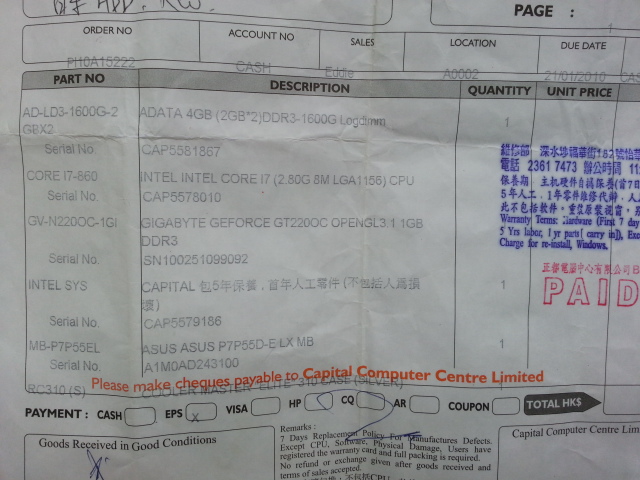 PAGE :
ORDER NO ACCOUNT NO SALES LOCATION DUE DATE
PI10A15222 CASH Eddie A0002 21/01/2010
PART NO DESCRIPTION QUANTITY UNIT PRICE
AD-LD3-1600G-2 ADATA 4GB (2GB*2)DDR3-1600G Logdimm 1
GBX2
Serial No. CAP5581867
CORE I7-860 INTEL INTEL CORE I7 (2.80G 8M LGA1156) CPU
Serial No. CAP5578010
GV-N220OC-1GI GIGABYTE GEFORCE GT220OC OPENGL3.1 1GB
DDR3
Serial No. SN100251099092
INTEL SYS CAPITAL 包5年保養，首年人工零件 (不包括人為損 1
壞)
Serial No. CAP5579186
MB-P7P55EL ASUS ASUS P7P55D-E LX MB 1
Serial No. A1M0AD243100
RC310 (S) COOLER MASTER ELITE 310 CASE (SILVER)
維修部 深水埗福華街
電話 2361 7473 辦公時間 11
保養期 主機硬件自携保養(首7
5年人工，1年零件維修代辦，人
此不包括軟件，重裝原裝視窗，
Warranty Terms: Hardware (First 7 day
5 Yrs labor, 1 yr parts( carry in)), Exc
Charge for re-install, Windows.
正都電腦中心有限公司
PAID
Please make cheques payable to Capital Computer Centre Limited
PAYMENT : CASH EPS X VISA HP CQ AR COUPON TOTAL HK$
Goods Received in Good Conditions
Remarks :
7 Days Replacement Policy For Manufactures Defects.
Except CPU, Software, Physical Damage, Users have
registered the warranty card and full packing is required.
No refund or exchange given after goods received and
terms of sales accepted.
Capital Computer Centre Lim